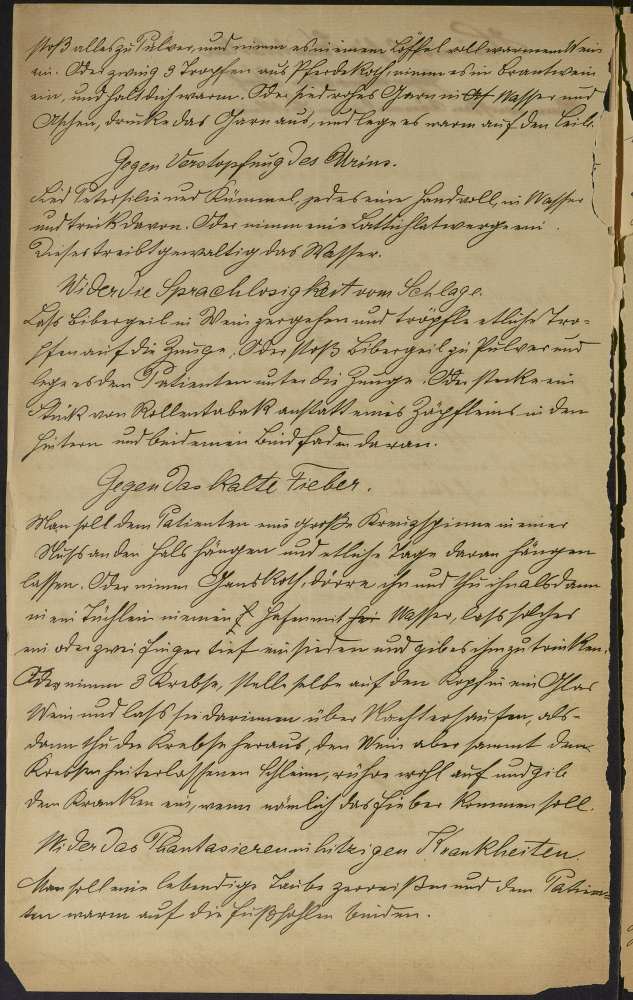 stoß alles zu Pulver, und nimm es in einem Löffel voll warmem Wein
ein. Oder zwing 3 Tropfen aus Pferdekoth, nimm es in Brantwein
ein, und halt dich warm. Oder sied rohes Garn in Wasser und
Aschen, drücke das Garn aus, und lege es warm auf den Leib.
Gegen Verstopfung des Urins.
Sied Petersilie und Kümmel, jedes eine Handvoll, in Wasser
und trink davon. Oder nimm eine Lattichlatwerge ein.
Dieses treibt gewaltig das Wasser.
Wider die Sprachlosigkeit vom Schlage.
Lass Bibergeil in Wein zergehen und tröpfle etliche Tro-
pfen auf die Zunge. Oder stoß Bibergeil zu Pulver und
lege es dem Patienten unter die Zunge. Oder stecke ein
Stück von Rollentabak anstatt eines Zäpfleins in den
Hintern und binde einen Bindfaden daran.
Gegen das kalte Fieber.
Man soll dem Patienten eine große Kreuzspinne in einer
Nuss an den Hals hängen und etliche Tage daran hängen
lassen. Oder nimm Ganskoth, dörre ihn und thu ihn alsdann
in ein Tüchlein in einen Hafen mit Wasser, lass solches
ein oder zwei Finger tief einsieden und gib es ihm zu trinken.
Oder nimm 3 Krebse, stelle selbe auf den Kopf in ein Glas
Wein und lass sie darinnen über Nacht ersaufen, als-
dann thu die Krebse heraus, den Wein aber sammt dem
Krebsen hinterlassenen Schleim, rühre wohl auf und gib
dem Kranken ein, wenn nämlich das Fieber kommen soll.
Wider das Phantasieren in hitzigen Krankheiten.
Man soll eine lebendige Taube zerreißen und dem Patien-
ten warm auf die Fußsohlen binden.